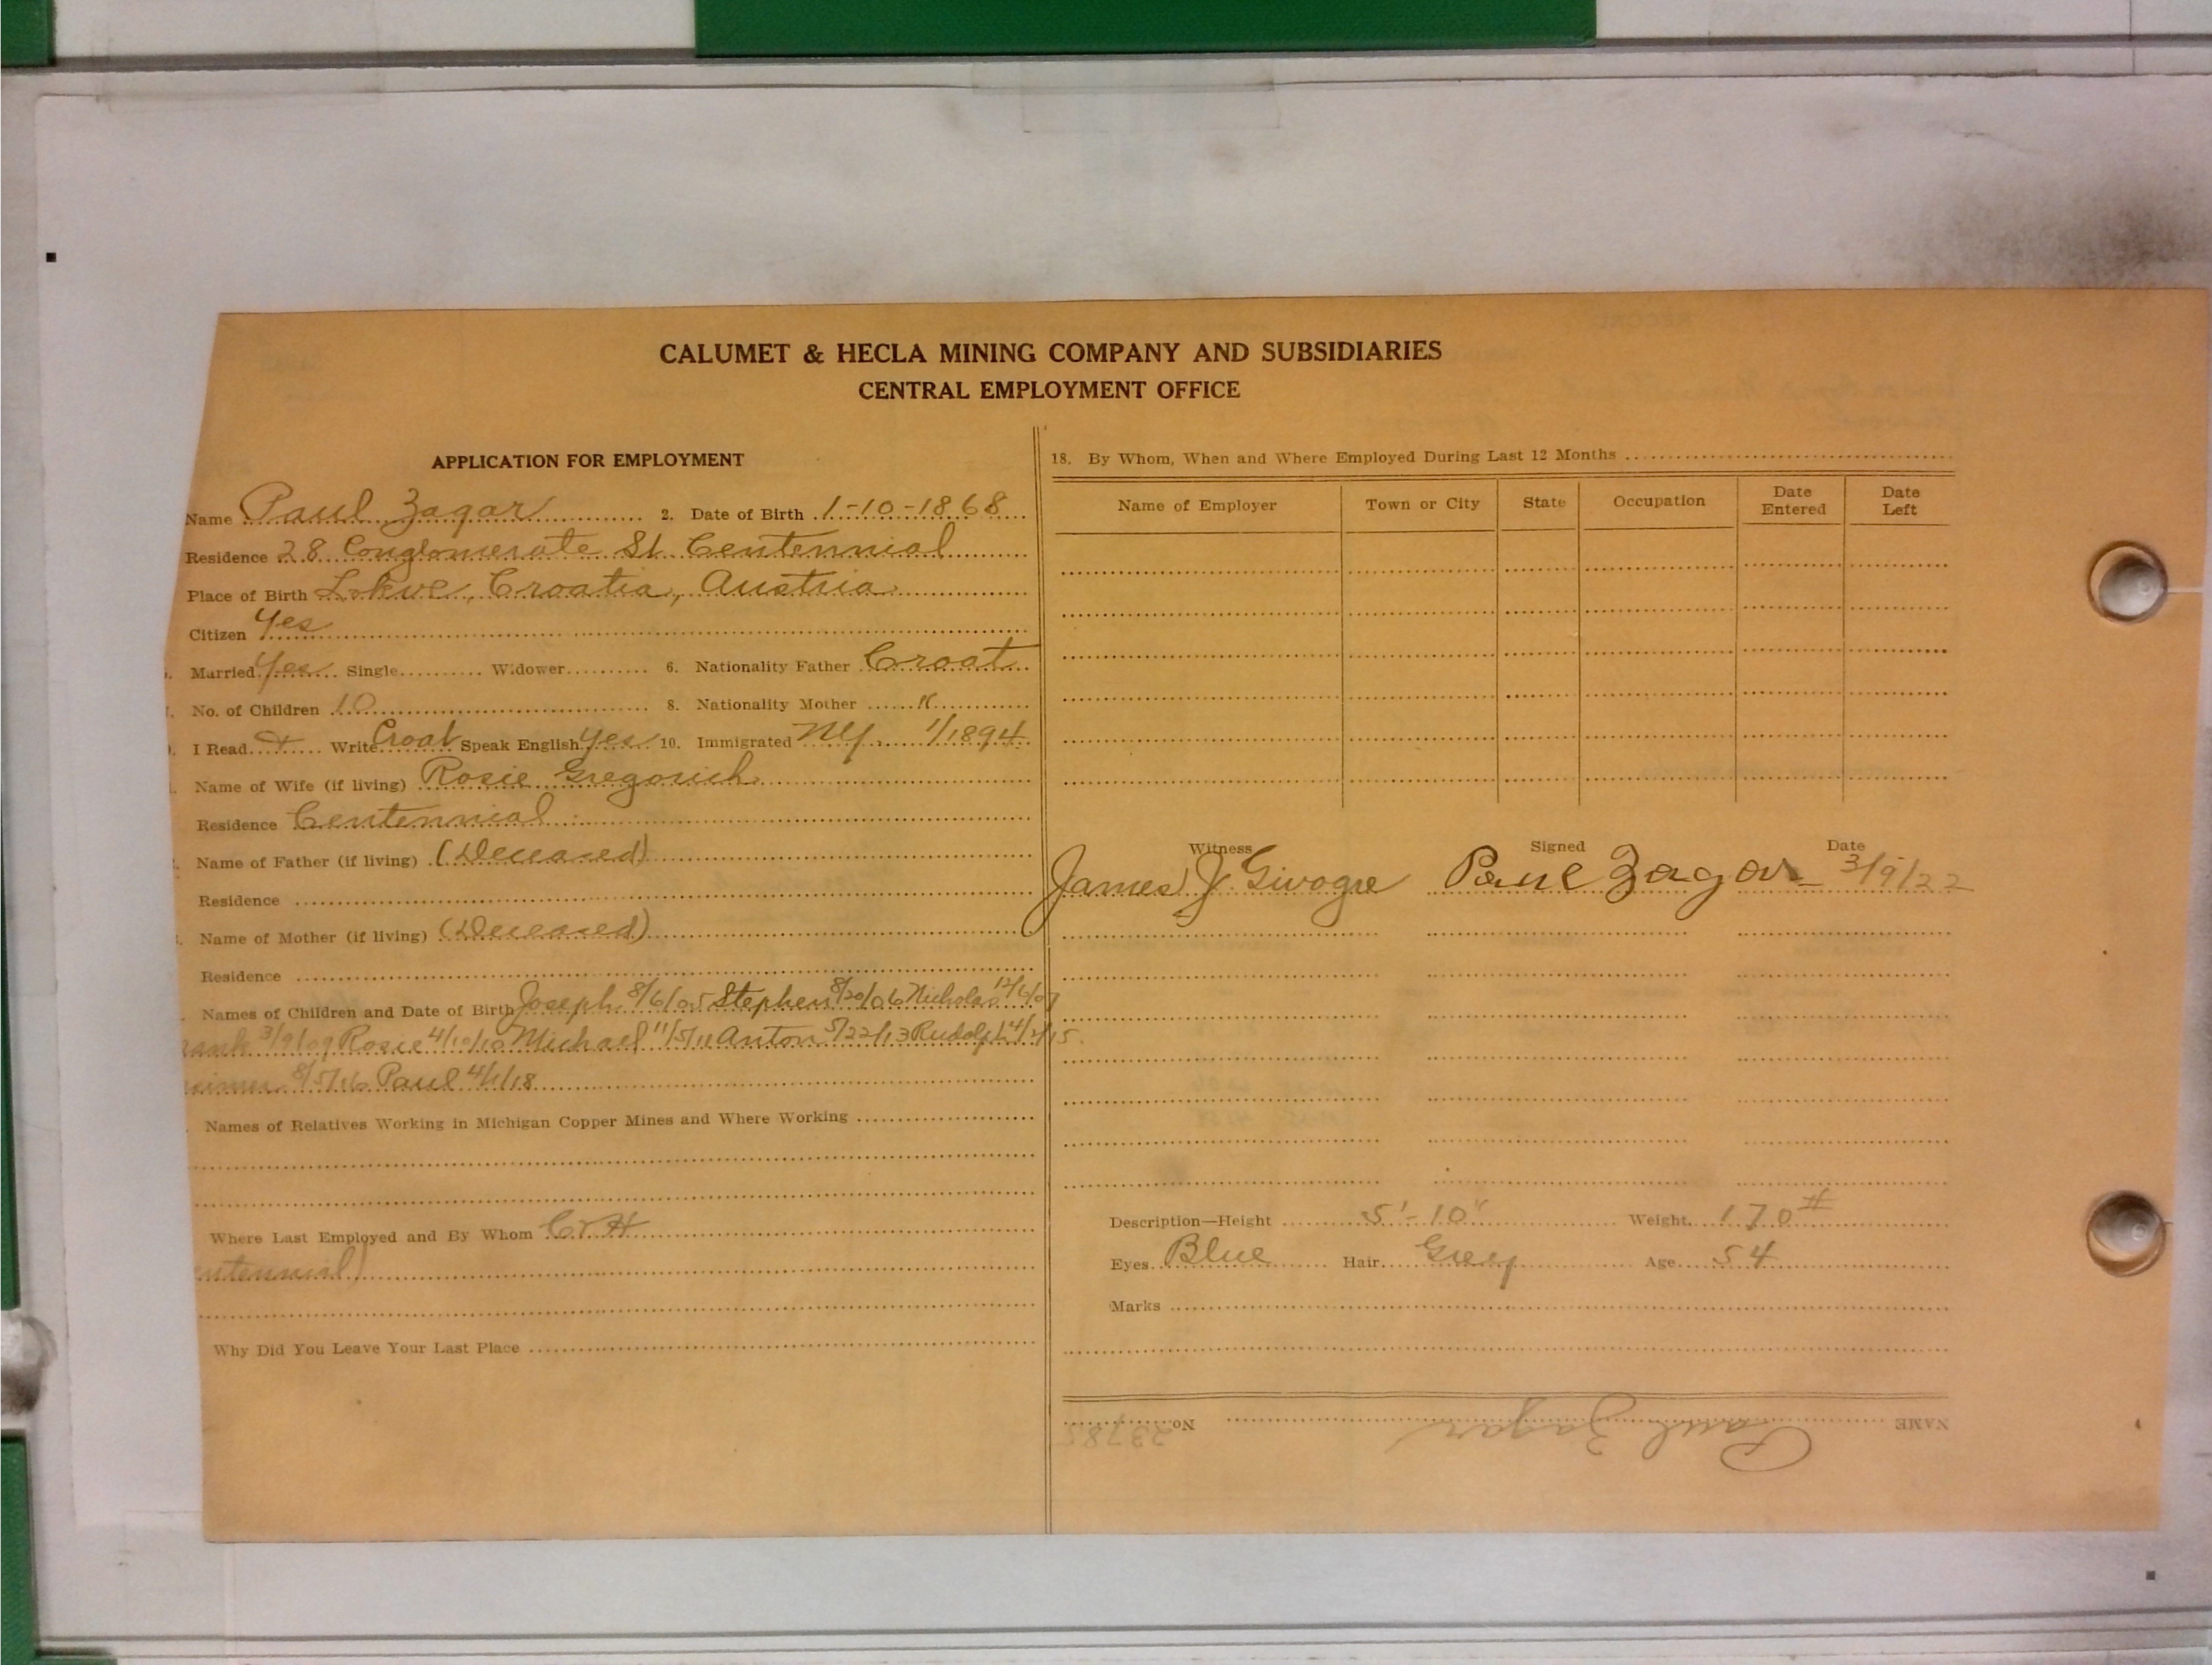 CALUMET & HECLA MINING COMPANY AND SUBSIDIARIES
CENTRAL EMPLOYMENT OFFICE
APPLICATION FOR EMPLOYMENT
Name Paul Zagar 2. Date of Birth 1-10-1868
Residence 28 Conglomerate St. Centennial
Place of Birth Lokve, Croatia, Austria
Citizen Yes
Married Yes Single Widower 6. Nationality Father Croat
No. of Children 10 8. Nationality Mother "
I Read + Write Croat Speak English Yes 10. Immigrated NY 1/1894
Name of Wife (if living) Rosie Gregorich
Residence Centennial
Name of Father (if living) (Deceased)
Residence
Name of Mother (if living) (Deceased)
Residence
Names of Children and Date of Birth Joseph 8/6/05 Stephen 8/20/06 Nicholas 12/6/07
rank 3/9/09 Rosie 4/10/10 Michael 11/5/11 Anton 5/22/13 Rudolph 4/2/15
8/5/16 Paul 4/1/18
Names of Relatives Working in Michigan Copper Mines and Where Working
Where Last Employed and By Whom C & H
entennial)
Why Did You Leave Your Last Place
18. By Whom, When and Where Employed During Last 12 Months
Name of Employer Town or City State Occupation Date Entered Date Left
Witness Signed Date
James J. Givogre Paul Zagar 3/9/22
Description—Height 5'-10" Weight 170#
Eyes Blue Hair Grey Age 54
Marks
NAME Paul Zagar No. 23785